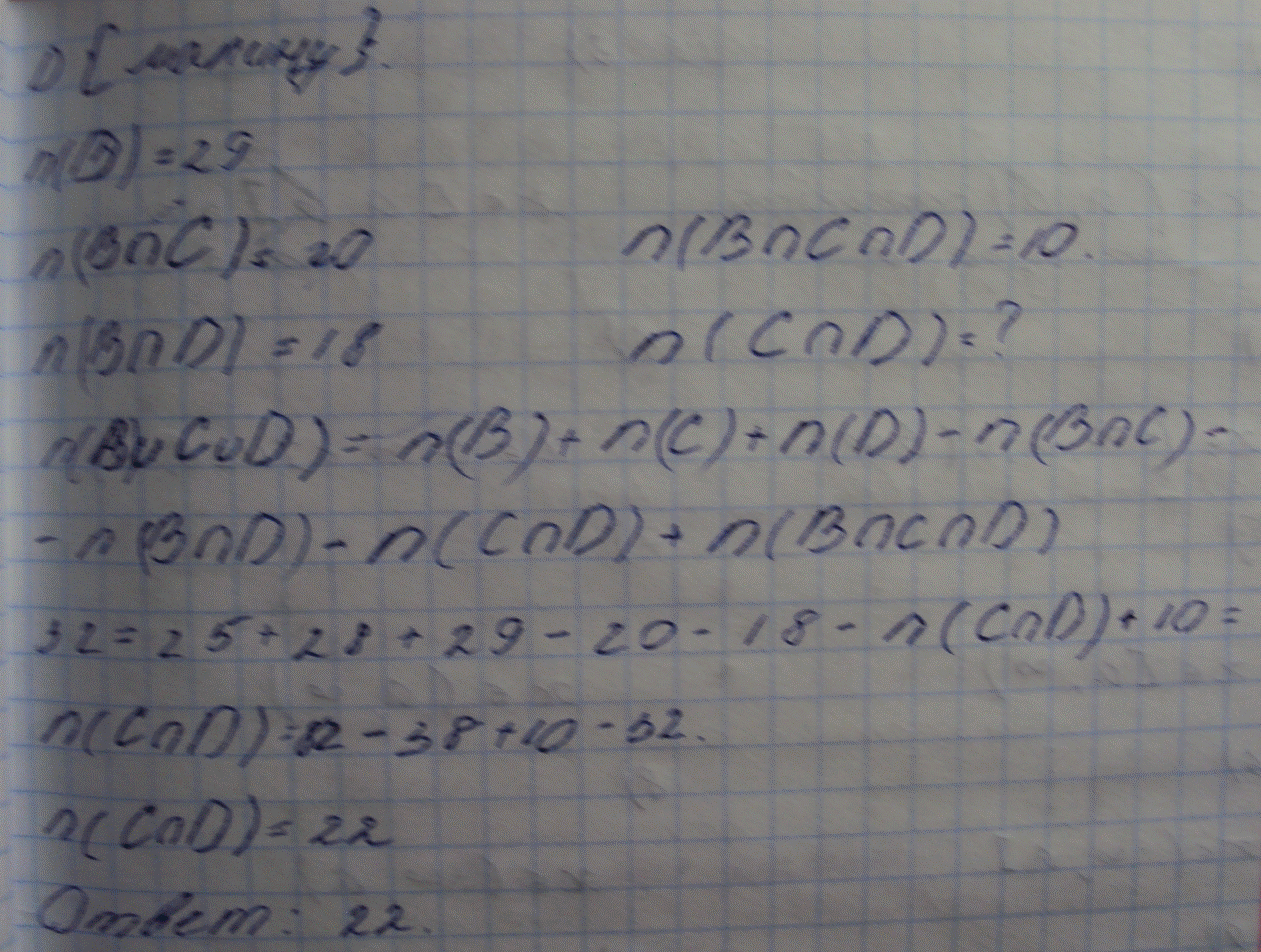 D { машину }.
n(D) = 29
n(B∩C) = 20 n(B∩C∩D) = 10.
n(B∩D) = 18 n(C∩D) = ?
n(B∪C∪D) = n(B) + n(C) + n(D) - n(B∩C) -
- n(B∩D) - n(C∩D) + n(B∩C∩D)
32 = 25 + 28 + 29 - 20 - 18 - n(C∩D) + 10 =
n(C∩D) = 82 - 38 + 10 - 32.
n(C∩D) = 22
Ответ: 22.